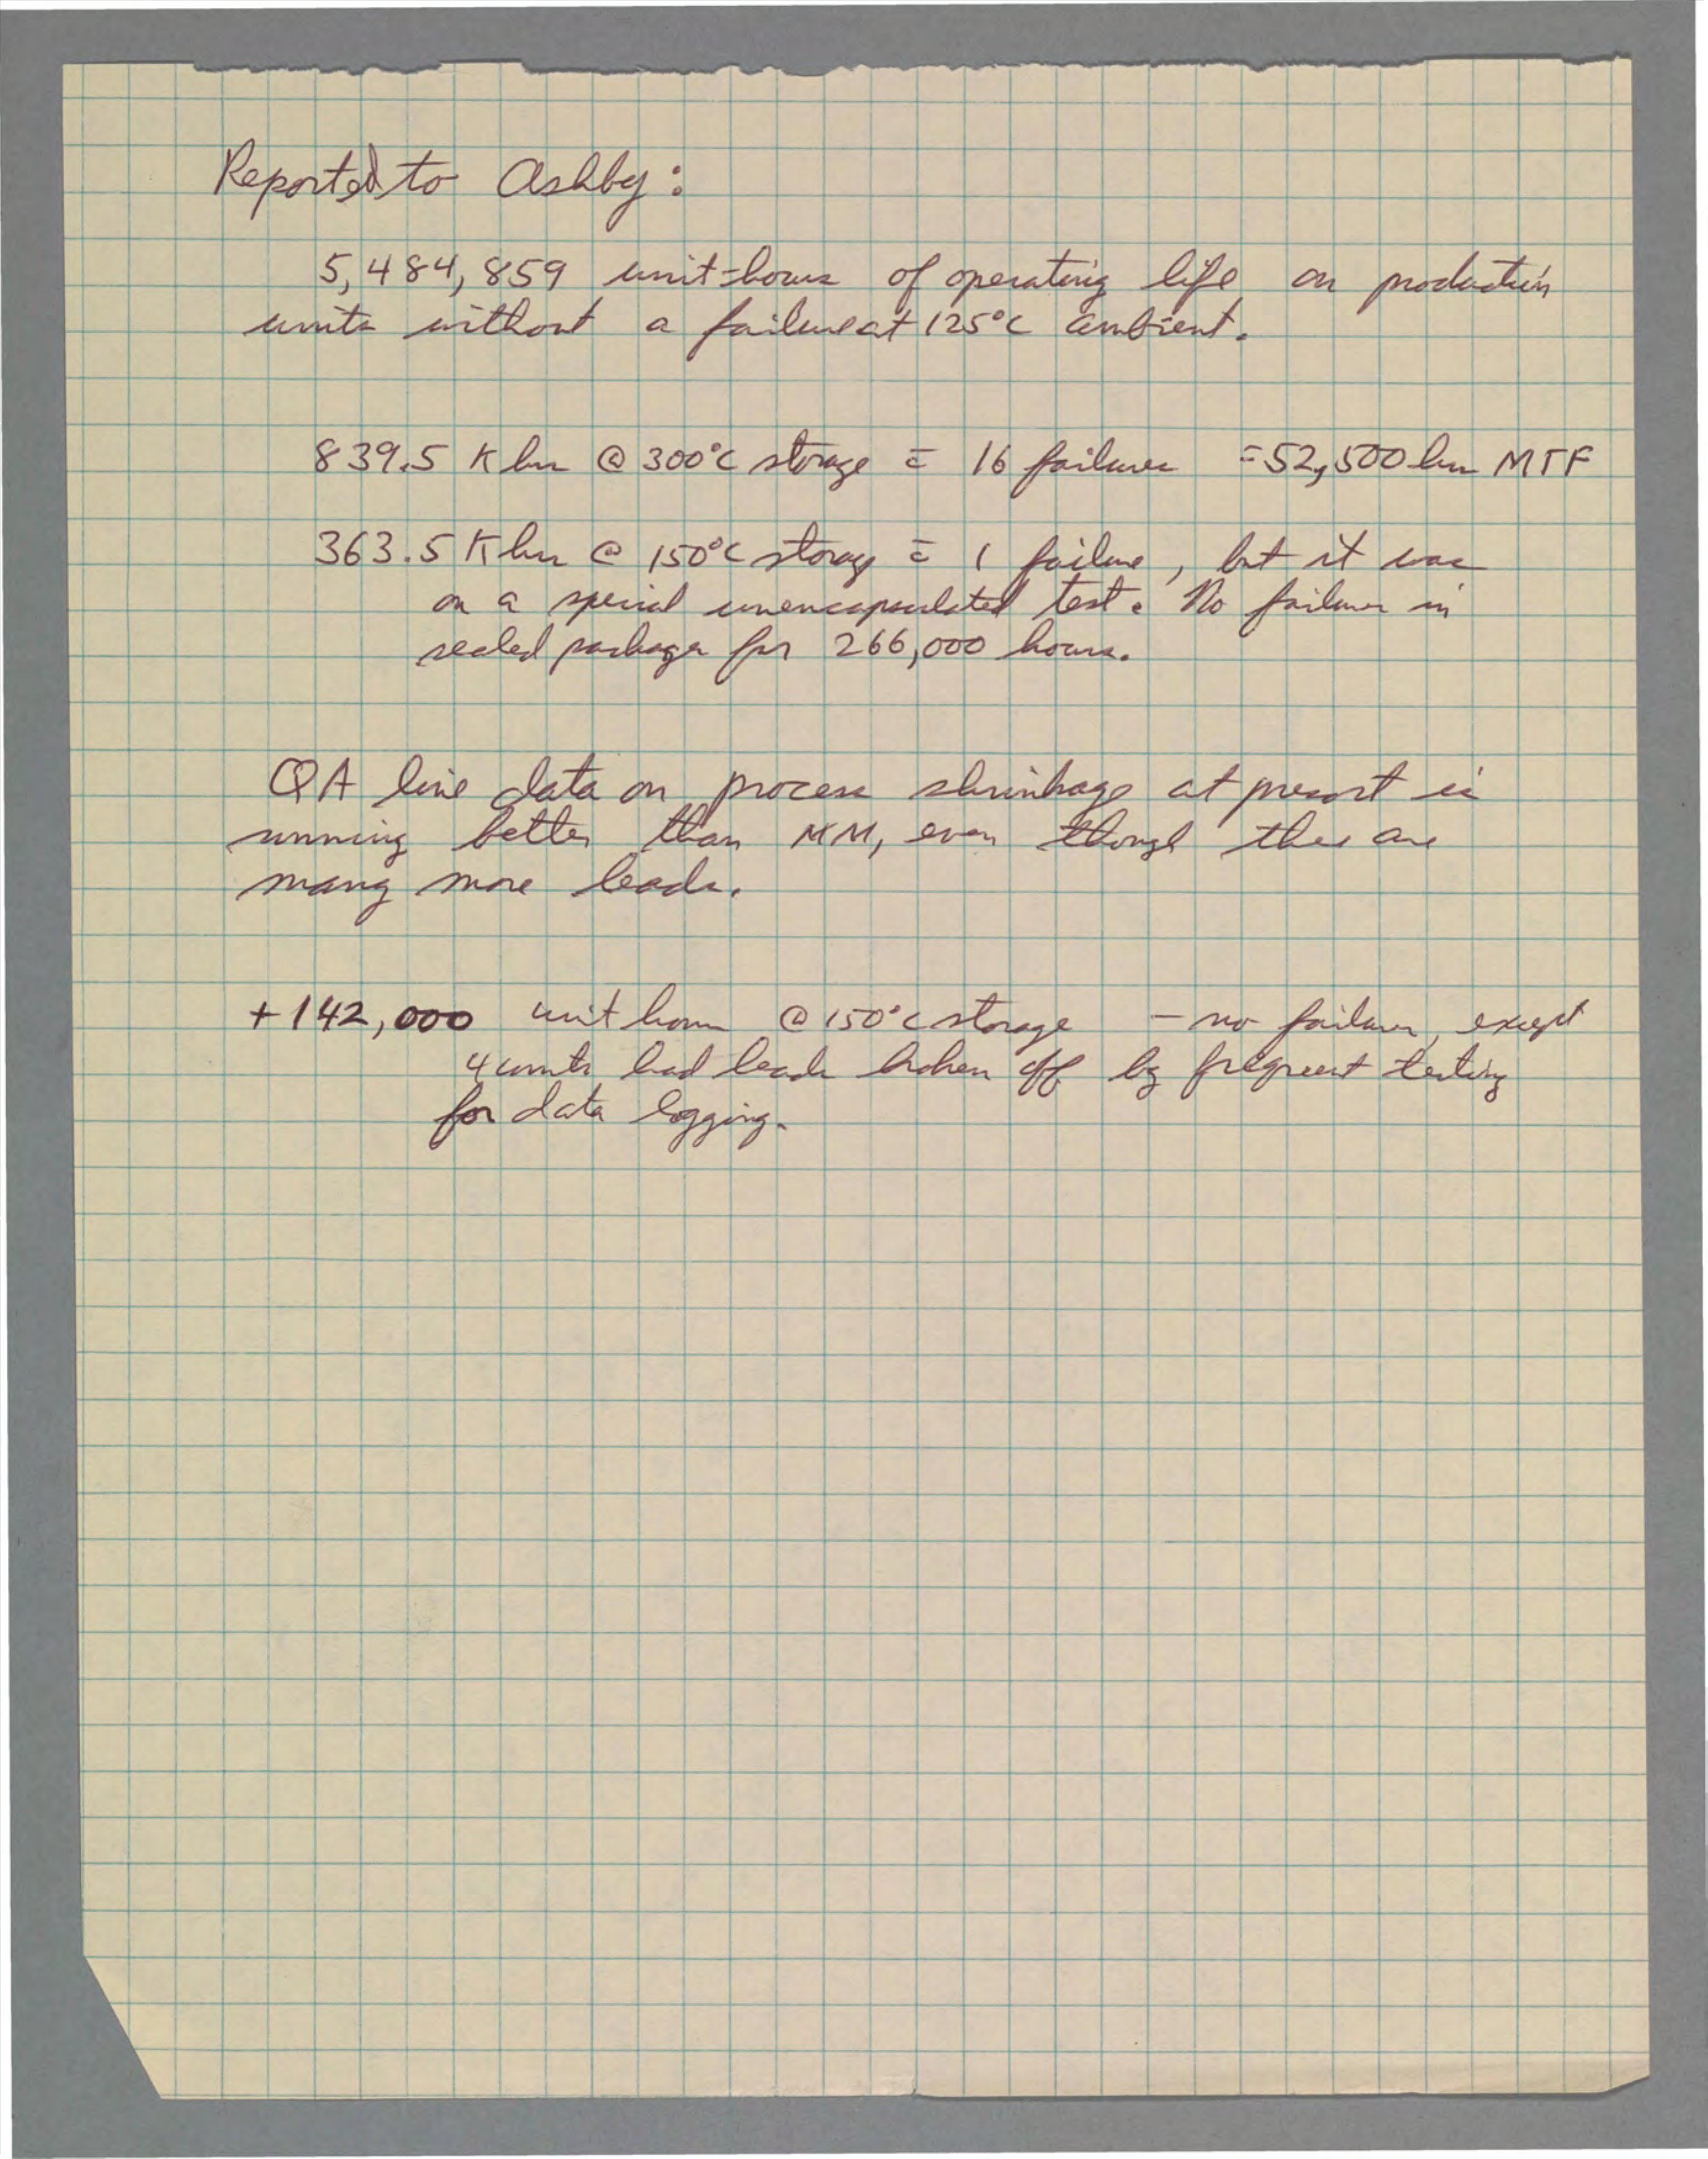 Reported to Ashby:
5,484,859 unit-hours of operating life on production
units without a failure at 125°C ambient.
839.5 K hrs @ 300°C storage c̄ 16 failures = 52,500 hrs MTF
363.5 K hrs @ 150°C storage c̄ 1 failure, but it was
on a special unencapsulated test. No failures in
sealed packages for 266,000 hours.
QA line data on process shrinkage at present is
running better than MM, even though there are
many more leads.
+142,000 unit hours @ 150°C storage - no failures, except
4 units had leads broken off by frequent testing
for data logging.